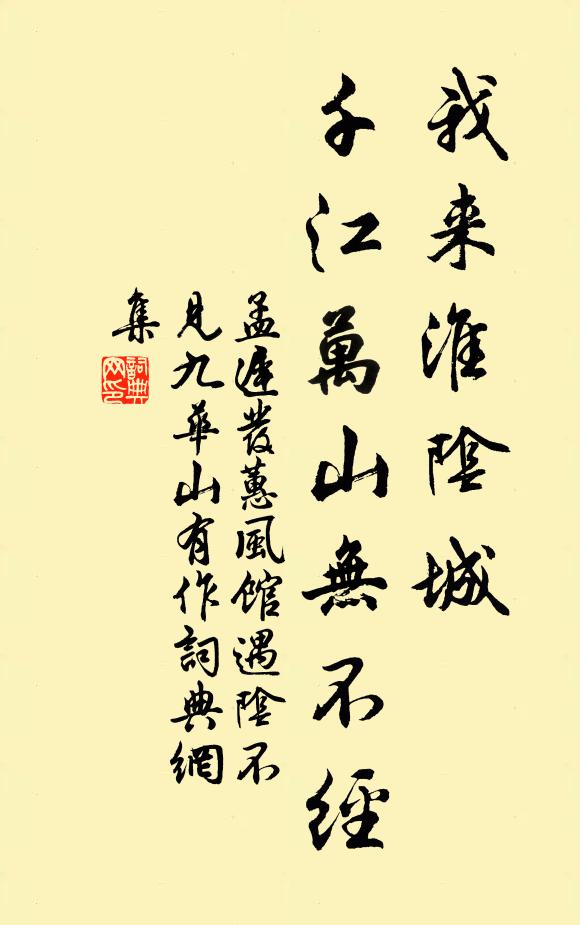 我来淮陰城
千江萬山無不經
孟遲發蕙風館遇陰不
見九華山有作詞典網
集
詞典
网印